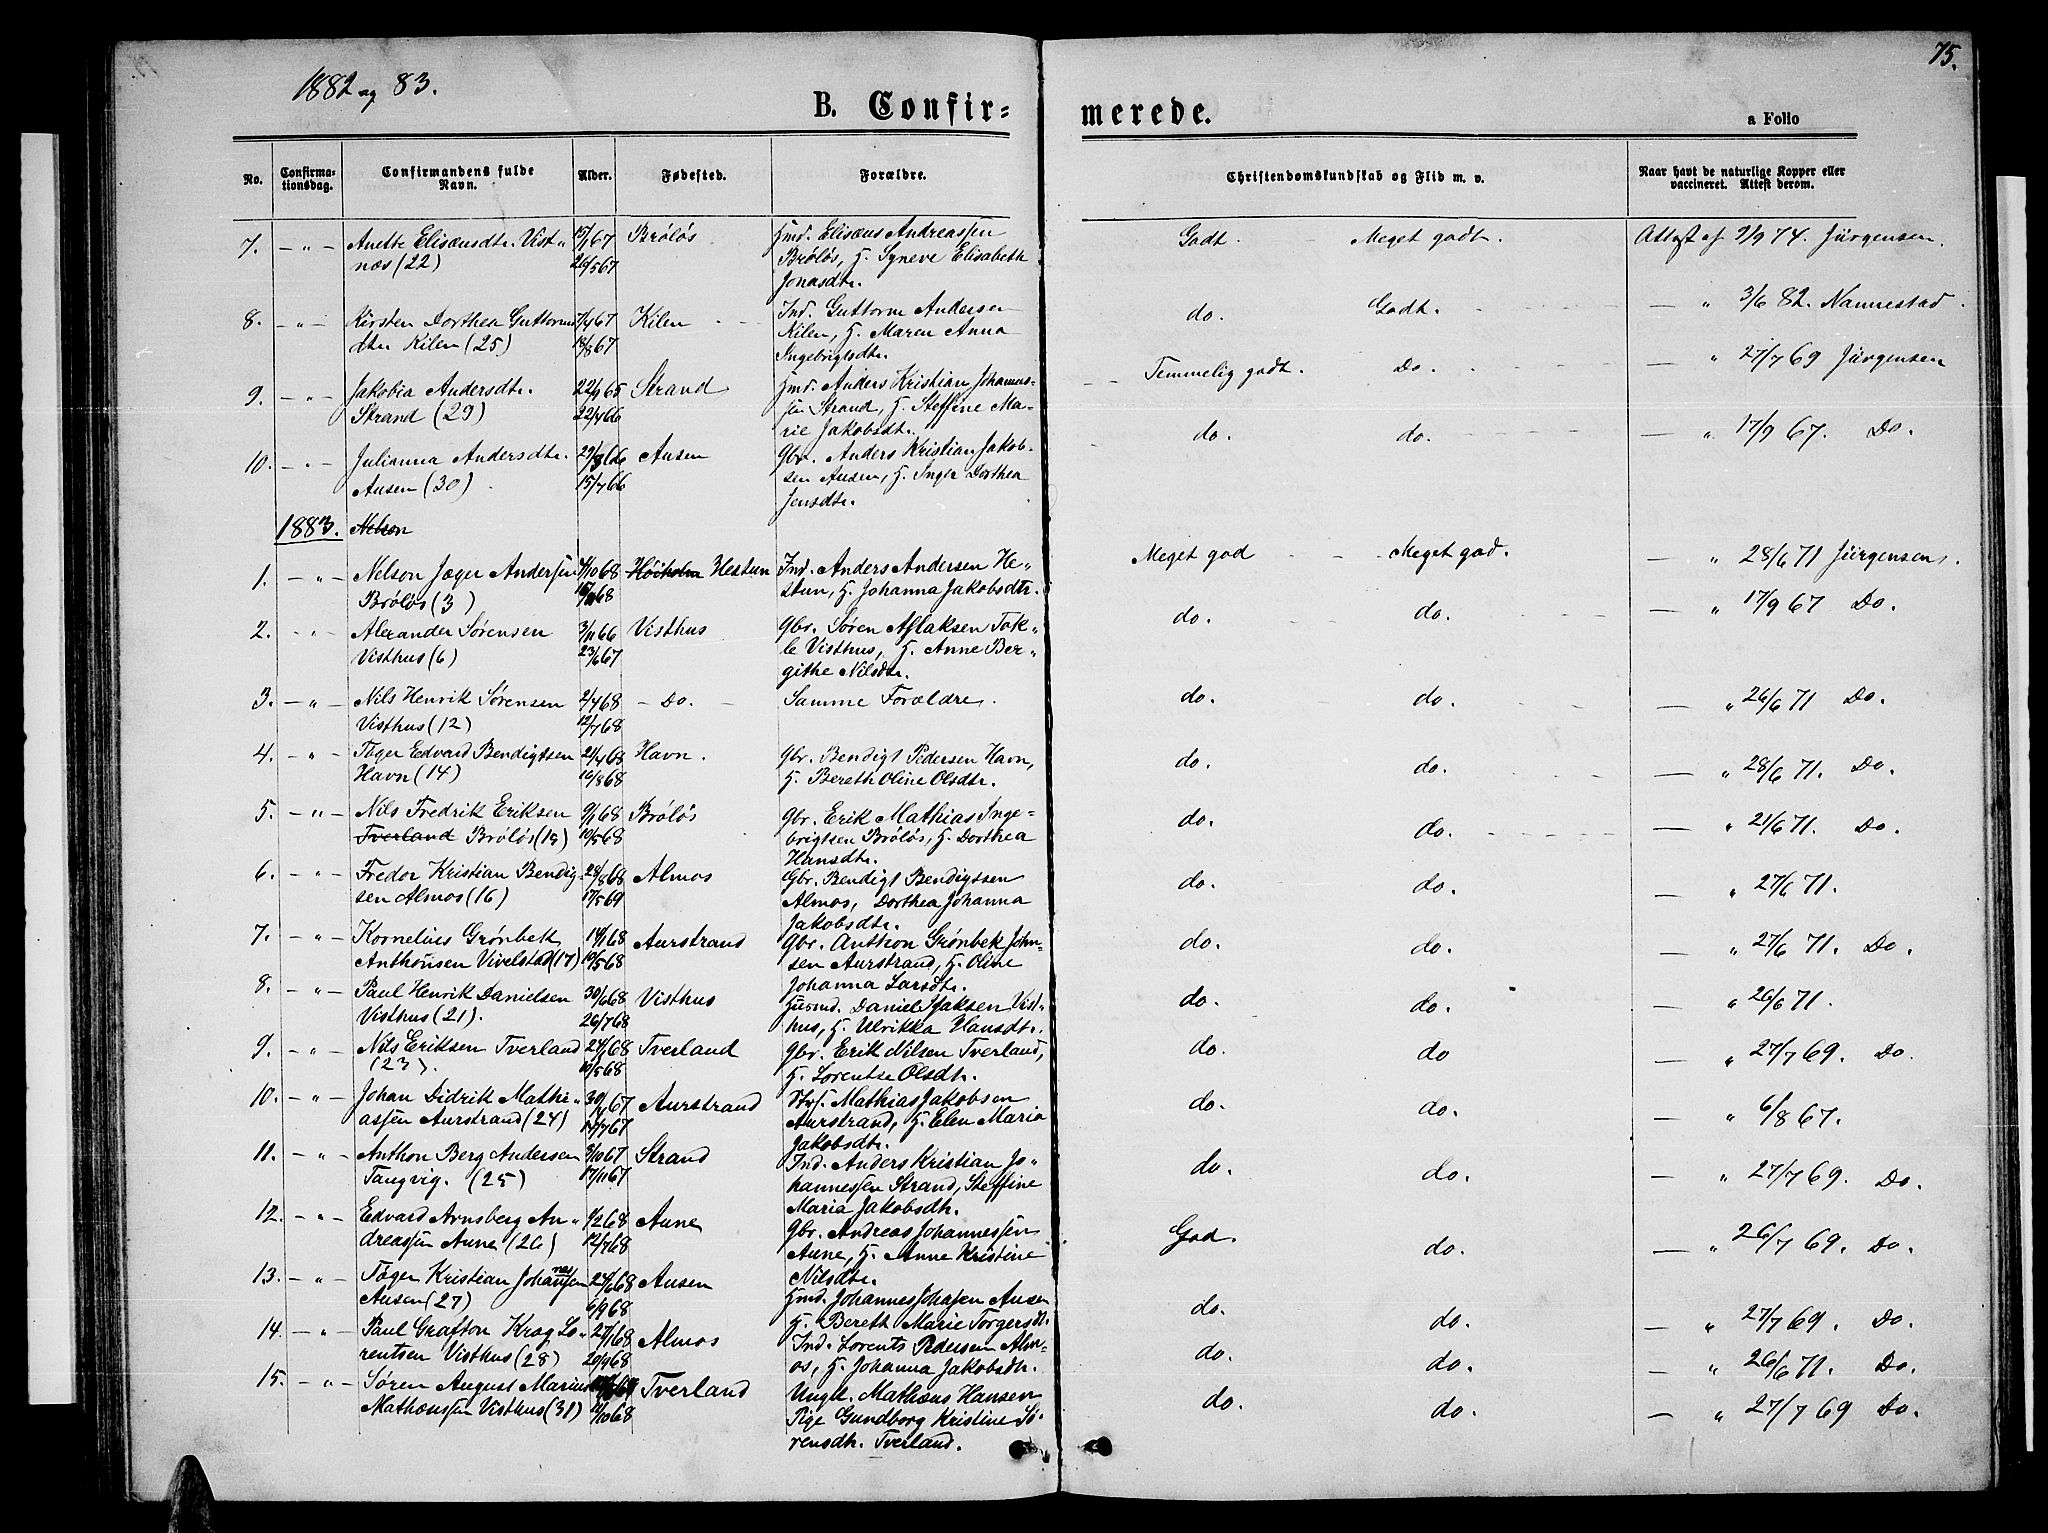 1882 og 83.
75.
B. Confir-
merede.
a Folio
No.
Confirma-
tionsdag.
Confirmandens fulde
Navn.
Alder.
Fødested.
Forældre.
Christendomskundskab og Flid m. v.
Naar havt de naturlige Kopper eller
vaccineret. Attest derom.
7. — " — Anette Elisæusdtr. Vist- 15/1 67 Brøløs Hmd. Elisæus Andreassen Godt. Meget godt. Attest af 9/9 74. Jürgensen.
næs (22) 26/5 67 Brøløs, H. Syneve Elisabeth
Jonasdtr.
8. — " — Kirsten Dorthea Guttorms 7/4 67 Kilen Ind. Guttorm Andersen do. Godt. — " 3/6 82. Nannestad.
dtr. Kilen (25) 18/8 67 Kilen, H. Maren Anna
Ingebrigtsdtr.
9. — " — Jakobia Andersdtr. 22/9 65 Strand Hmd. Anders Kristian Johannes- Temmelig godt. Do. — " 27/7 69 Jürgensen
Strand (29) 22/4 66 sen Strand, H. Steffine Ma-
rie Jakobsdtr.
10. — " — Julianna Andersdtr. 29/3 66 Ausen Gbr. Anders Kristian Jakob- do. do. — " 17/9 67. Do.
Ausen (30) 15/7 66 sen Ausen, H. Inger Dorthea
Jensdtr.
1883. Nelson
1. — " — Nelson Jæger Andersen 68 Höiholm Hestun Ind. Anders Andersen He- Meget god Meget god. — " 28/6 71 Jürgensen.
Brøløs (3) 68 stun, H. Johanna Jakobsdtr.
2. — " — Alexander Sørensen 3/11 66 Visthus Gbr. Søren Aslaksen Tok- do. do. — " 17/9 67 Do.
Visthus (6) 23/6 67 le Visthus, H. Anne Ber-
githe Nilsdtr.
3. — " — Nils Henrik Sørensen 2/4 68 — Do. — Samme Forældre. do. do. — " 26/6 71 Do.
Visthus (12) 12/7 68
4. — " — Tøger Edvard Bendigtsen 21/4 68 Havn. Gbr. Bendigt Pedersen Havn, do. do. — " 28/6 71. Do.
Havn (14) 16/8 68 H. Bereth Oline Olsdtr.
5. — " — Nils Fredrik Eriksen 9/1 68 Brøløs Gbr. Erik Mathias Inge- do. do. — " 21/6 71. Do.
Tverland Brøløs (15) 10/5 68 brigtsen Brøløs, H. Dorthea
Hansdtr.
6. — " — Fredor Kristian Bendig- 28/8 68 Almos Gbr. Bendigt Bendigtsen do. do. — " 27/6 71.
sen Almos (16) 17/5 69 Almos, Dorthea Johanna
Jakobsdtr.
7. — " — Kornelius Grønbek 14/1 68 Aurstrand Gbr. Anthon Grønbek John- do. do. — " 27/6 71. Do.
Anthonsen Vivelstad (17) 10/5 68 sen Aurstrand, H. Oline
Johanna Larsdtr.
8. — " — Paul Henrik Danielsen 30/6 68 Visthus Husmd. Daniel Isaksen Vist- do. do. — " 26/6 71.
Visthus (21). 26/7 68 hus, H. Ulrikka Hansdtr.
9. — " — Nils Eriksen Tverland 24/1 68 Tverland Gbr. Erik Nilsen Tverland, do. do — " 27/7 69. Do.
(23). 10/5 68 H. Lorentse Olsdtr.
10. — " — Johan Didrik Mathi- 30/4 67 Aurstrand Mathias Jakobsen do. do. — " 6/8 67.
assen Aurstrand (24) 14/7 67 Aurstrand, H. Elen Maria
Jakobsdtr.
11. — " — Anthon Berg Andersen 3/10 67 Strand Ind. Anders Kristian Jo- do. do. — " 27/7 69. Do.
Tangvig. (25) 17/11 67 hannessen Strand, Steffine
Maria Jakobsdtr.
12. — " — Edvard Arnsberg An- 9/2 68 Aune Gbr. Andreas Johannessen God. do. — " 26/7 69. Do.
dreassen Aune (26) 12/7 68 Aune, H. Anne Kristine
Nilsdtr.
13. — " — Tøger Kristian Johannessen 24/6 68 Ausen Hmd. Johannes Johasen Ausen do. do. — " 27/7 69. Do.
Ausen (27) 6/9 68 H. Bereth Marie Torgersdtr.
14. — " — Paul Grafton Krag Lo- 27/1 68 Almos Ind. Lorents Pedersen Alm- do. do. — " 26/6 71. Do.
rentsen Visthus (28) 20/4 68 os, H. Johanna Jakobsdtr.
15. — " — Søren August Marius 68 Tverland Ungk. Mathæus Hansen do. do. — " 27/7 69 Do.
Mathæussen Visthus (31) 11/10 68 Pige Gundborg Kristine Sø-
rensdtr. Tverland.